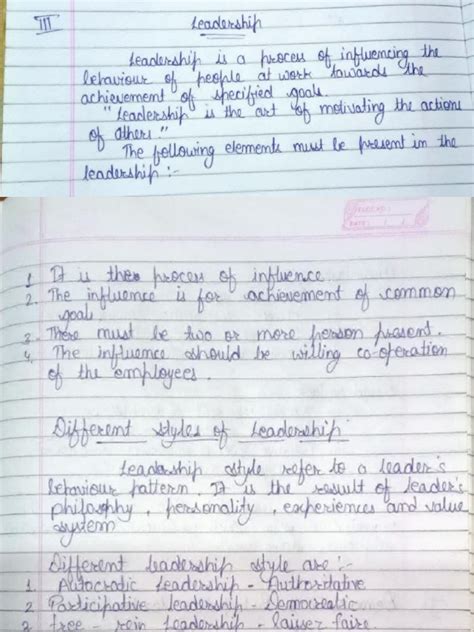 III Leadership
Leadership is a process of influencing the
behaviour of people at work towards the
achievement of specified goals.
"Leadership is the art of motivating the actions
of others."
The following elements must be present in the
leadership :-
PAGE NO.:
DATE: / /
1. It is the process of influence.
2. The influence is for achievement of common
goals.
3. There must be two or more person present.
4. The influence should be willing co-operation
of the employees.
Different styles of Leadership.
Leadership style refer to a leader's
behaviour pattern. It is the result of leader's
philosophy, personality, experiences and value
system
Different leadership style are :-
1. Autocradic Leadership - Authoritative
2. Participative leadership - Democreatic
3 free - rein Leadership - laisser faire